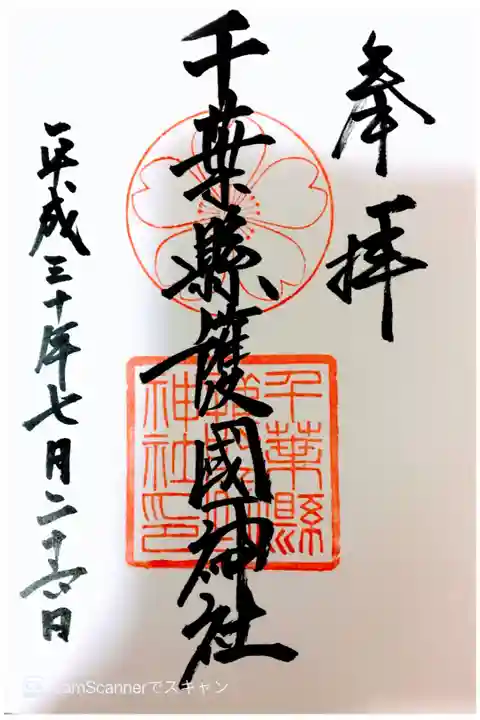 奉拝
千葉縣護國神社
千葉縣
護國
神社印
平成三十年七月二十六日
CamScannerでスキャン